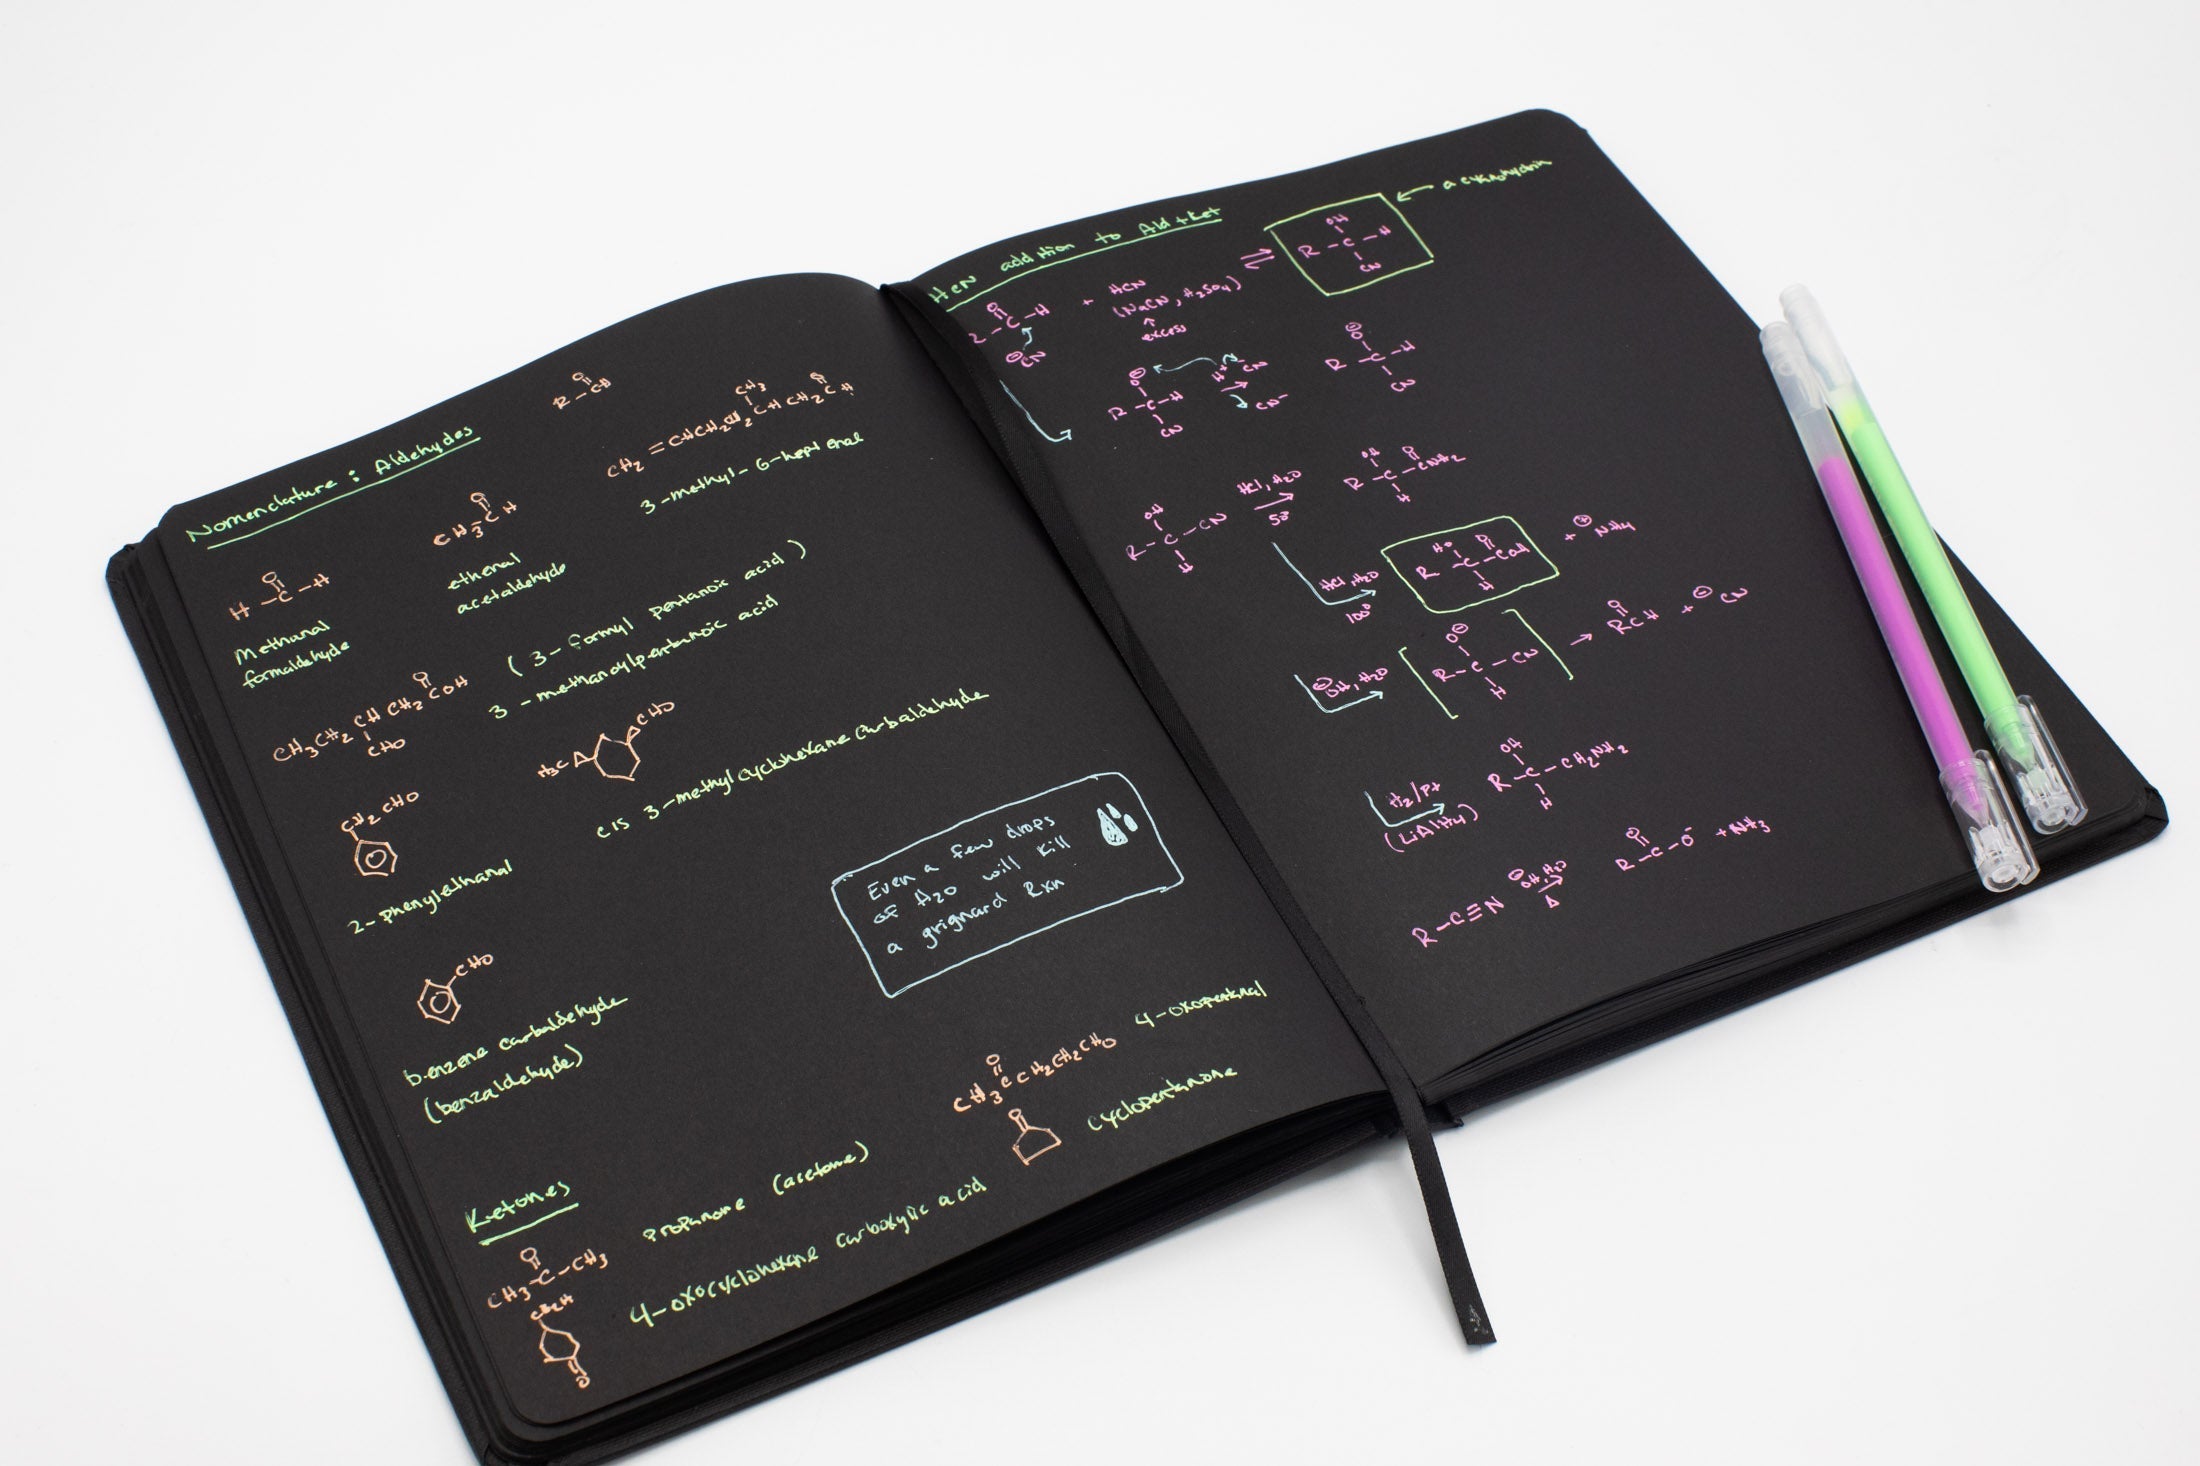 Nomenclature : Aldehydes
O
R - CH
CH3
O
CH2 = CHCH2CH2CHCH2CH
3-methyl-6-heptenal
O
H - C - H
Methanal
formaldehyde
O
CH3 - CH
ethanal
acetaldehyde
O
CH3CH2CHCH2COH
CHO
(3-formyl pentanoic acid)
3-methanoylpentanoic acid
H3C
CHO
cis 3-methylcyclohexane carbaldehyde
CH2CHO
2-phenylethanal
Even a few drops
of H2O will kill
a grignard Rxn
CHO
benzene carbaldehyde
(benzaldehyde)
O
CH3CCH2CH2CHO
4-oxopentanal
O
cyclopentanone
Ketones
O
CH3 - C - CH3
propanone (acetone)
CO2H
O
4-oxocyclohexane carboxylic acid
HCN addition to Ald + ket
O
C - H
+
HCN
(NaCN, H2SO4)
↑
excess
⊖CN
⇌
OH
R - C - H
CN
← a cyanohydrin
O⊖
R - C - H
CN
H+ -CN
→
CN-
O⊖
R - C - H
CN
OH
R - C - CN
H
HCl, H2O
→
50°
OH O
R - C - CNH2
H
HCl, H2O
100°
HO O
R - C - COH
H
+ ⊕NH4
⊖OH, H2O
O⊖
R - C - CN
H
→
O
RCH
+ ⊖CN
H2/Pt
(LiAlH4)
OH
R - C - CH2NH2
H
R - C ≡ N
⊖OH, H2O
→
Δ
O
R - C - O-
+ NH3